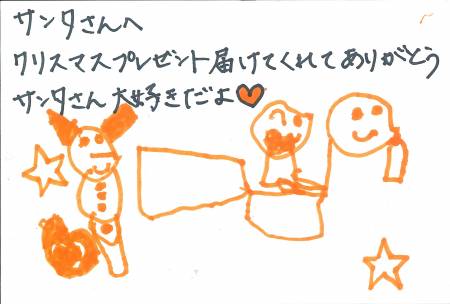 サンタさんへ
クリスマスプレゼント届けてくれてありがとう
サンタさん大好きだよ